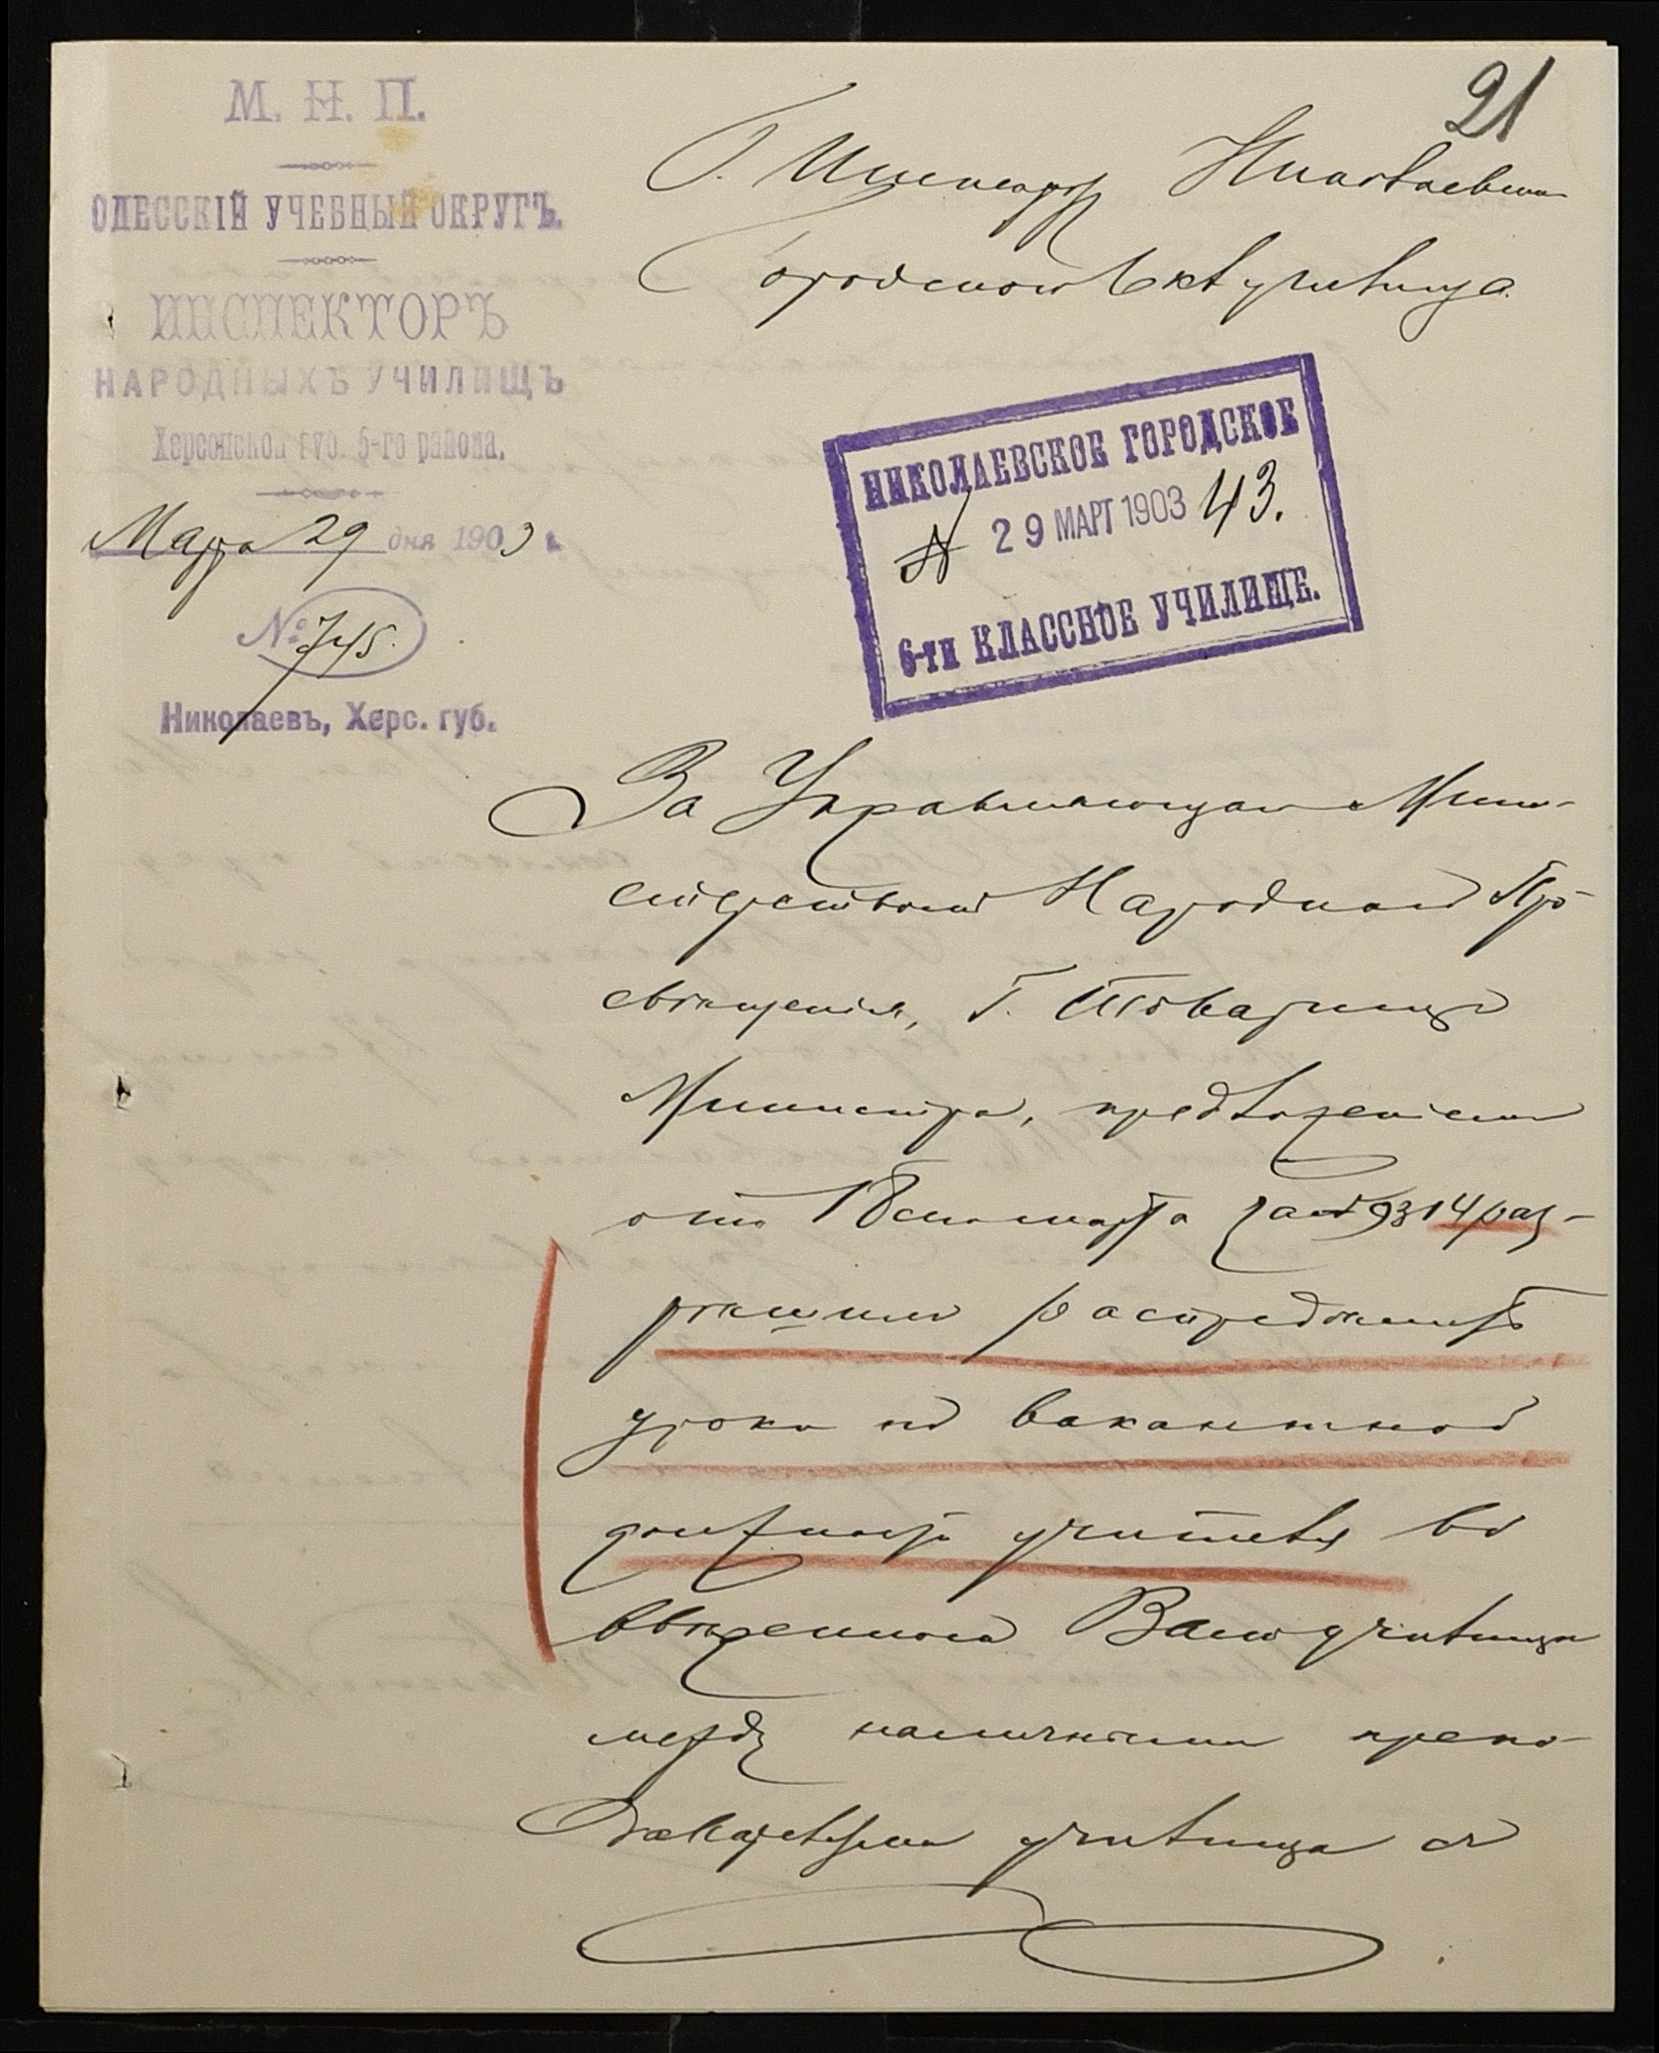 21
М. Н. П.
ОДЕССКІЙ УЧЕБНЫЙ ОКРУГЪ.
ИНСПЕКТОРЪ
НАРОДНЫХЪ УЧИЛИЩЪ
Херсонской губ. 5-го района.
Марта 29 дня 1903 г.
№ 745.
Николаевъ, Херс. губ.
Г. Инспектору Николаевскаго
Городского 6 кл училища.
НИКОЛАЕВСКОЕ ГОРОДСКОЕ
№ 29 МАРТ 1903 43.
6-ти КЛАССНОЕ УЧИЛИЩЕ.
За Управляющаго Мини-
стерствомъ Народнаго Про-
свѣщенія, Г. Товарищъ
Министра, предложеніемъ
отъ 18 сего марта за № 9314 раз-
рѣшилъ распредѣлить
уроки по вакантной
должности учителя во
ввѣренномъ Вамъ училищѣ
между наличными препо-
давателями училища съ